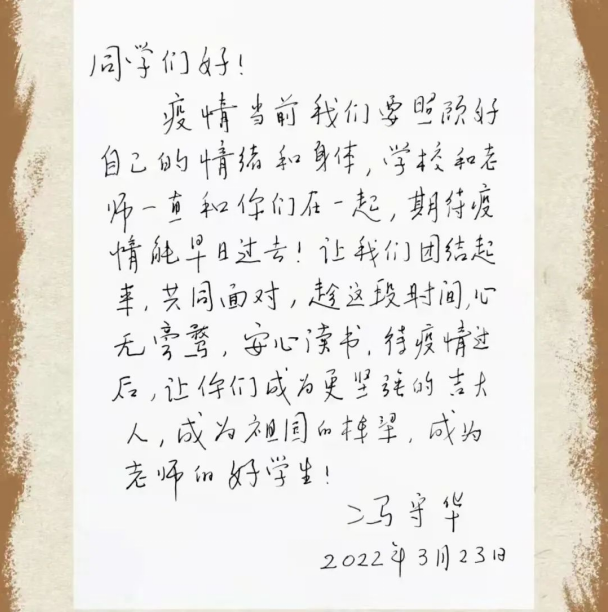 同学们好！
疫情当前我们要照顾好
自己的情绪和身体，学校和老
师一直和你们在一起，期待疫
情能早日过去！让我们团结起
来，共同面对，趁这段时间，心
无旁骛，安心读书，待疫情过
后，让你们成为更坚强的吉大
人，成为祖国的栋梁，成为
老师的好学生！
冯守华
2022年3月23日